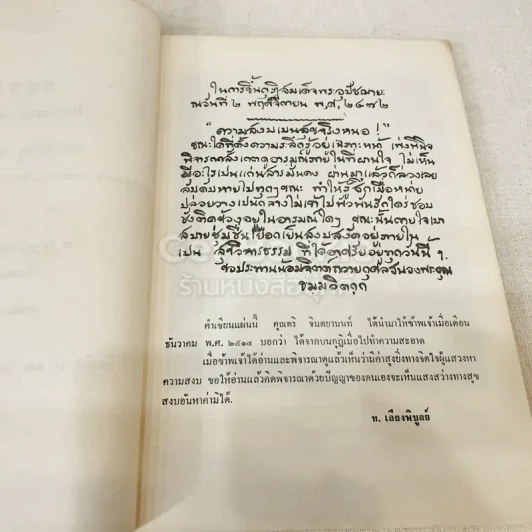 ในการขึ้นกุฏิสมเด็จพระอุปัชฌายะ
ณวันที่ ๒ พฤศจิกายน พ.ศ. ๒๔๗๒
"ความสงบเป็นสุขจริงหนอ !"
ขณะใดที่ตั้งความระลึกรู้อยู่เฉพาะหน้า เพ่งพินิจ
พิจารณาสังเกตดูอารมณ์ภายในที่ผ่านใจ ไม่เห็น
มีอะไรเป็นแก่นสารมั่นคง ผ่านมาแล้วก็ล่วงเลย
ดับหายไปทุกๆขณะ ทำให้รู้สึกเบื่อหน่าย
ปล่อยวางเป็นกลางไม่เข้าไปพัวพันรักใคร่ชอบ
ชังติดข้องอยู่ในอารมณ์ใดๆ ขณะนั้นกายใจเบา
สบายชุ่มชื่นเยือกเย็นสงบสงัดอยู่ภายใน
เป็น วิหารธรรม ที่ได้อาศรัยอยู่ทุกวันนี้ ฯ
ขอประทานน้อมจิตต์ถวายกุศลสนองพระคุณ
คำเขียนแผ่นนี้ คุณตริ จินตยานนท์ ได้นำมาให้ข้าพเจ้าเมื่อเดือน
ธันวาคม พ.ศ. ๒๕๑๔ บอกว่า ได้จากบนกุฏิเมื่อไปทำความสะอาด
เมื่อข้าพเจ้าได้อ่านและพิจารณาดูแล้วเห็นว่ามีค่าสูงยิ่งทางจิตใจผู้แสวงหา
ความสงบ ขอให้อ่านแล้วคิดพิจารณาด้วยปัญญาของตนเองจะเห็นแสงสว่างทางสุข
สงบอันหาค่ามิได้.
ท. เลียงพิบูลย์
ร้านหนังสือ